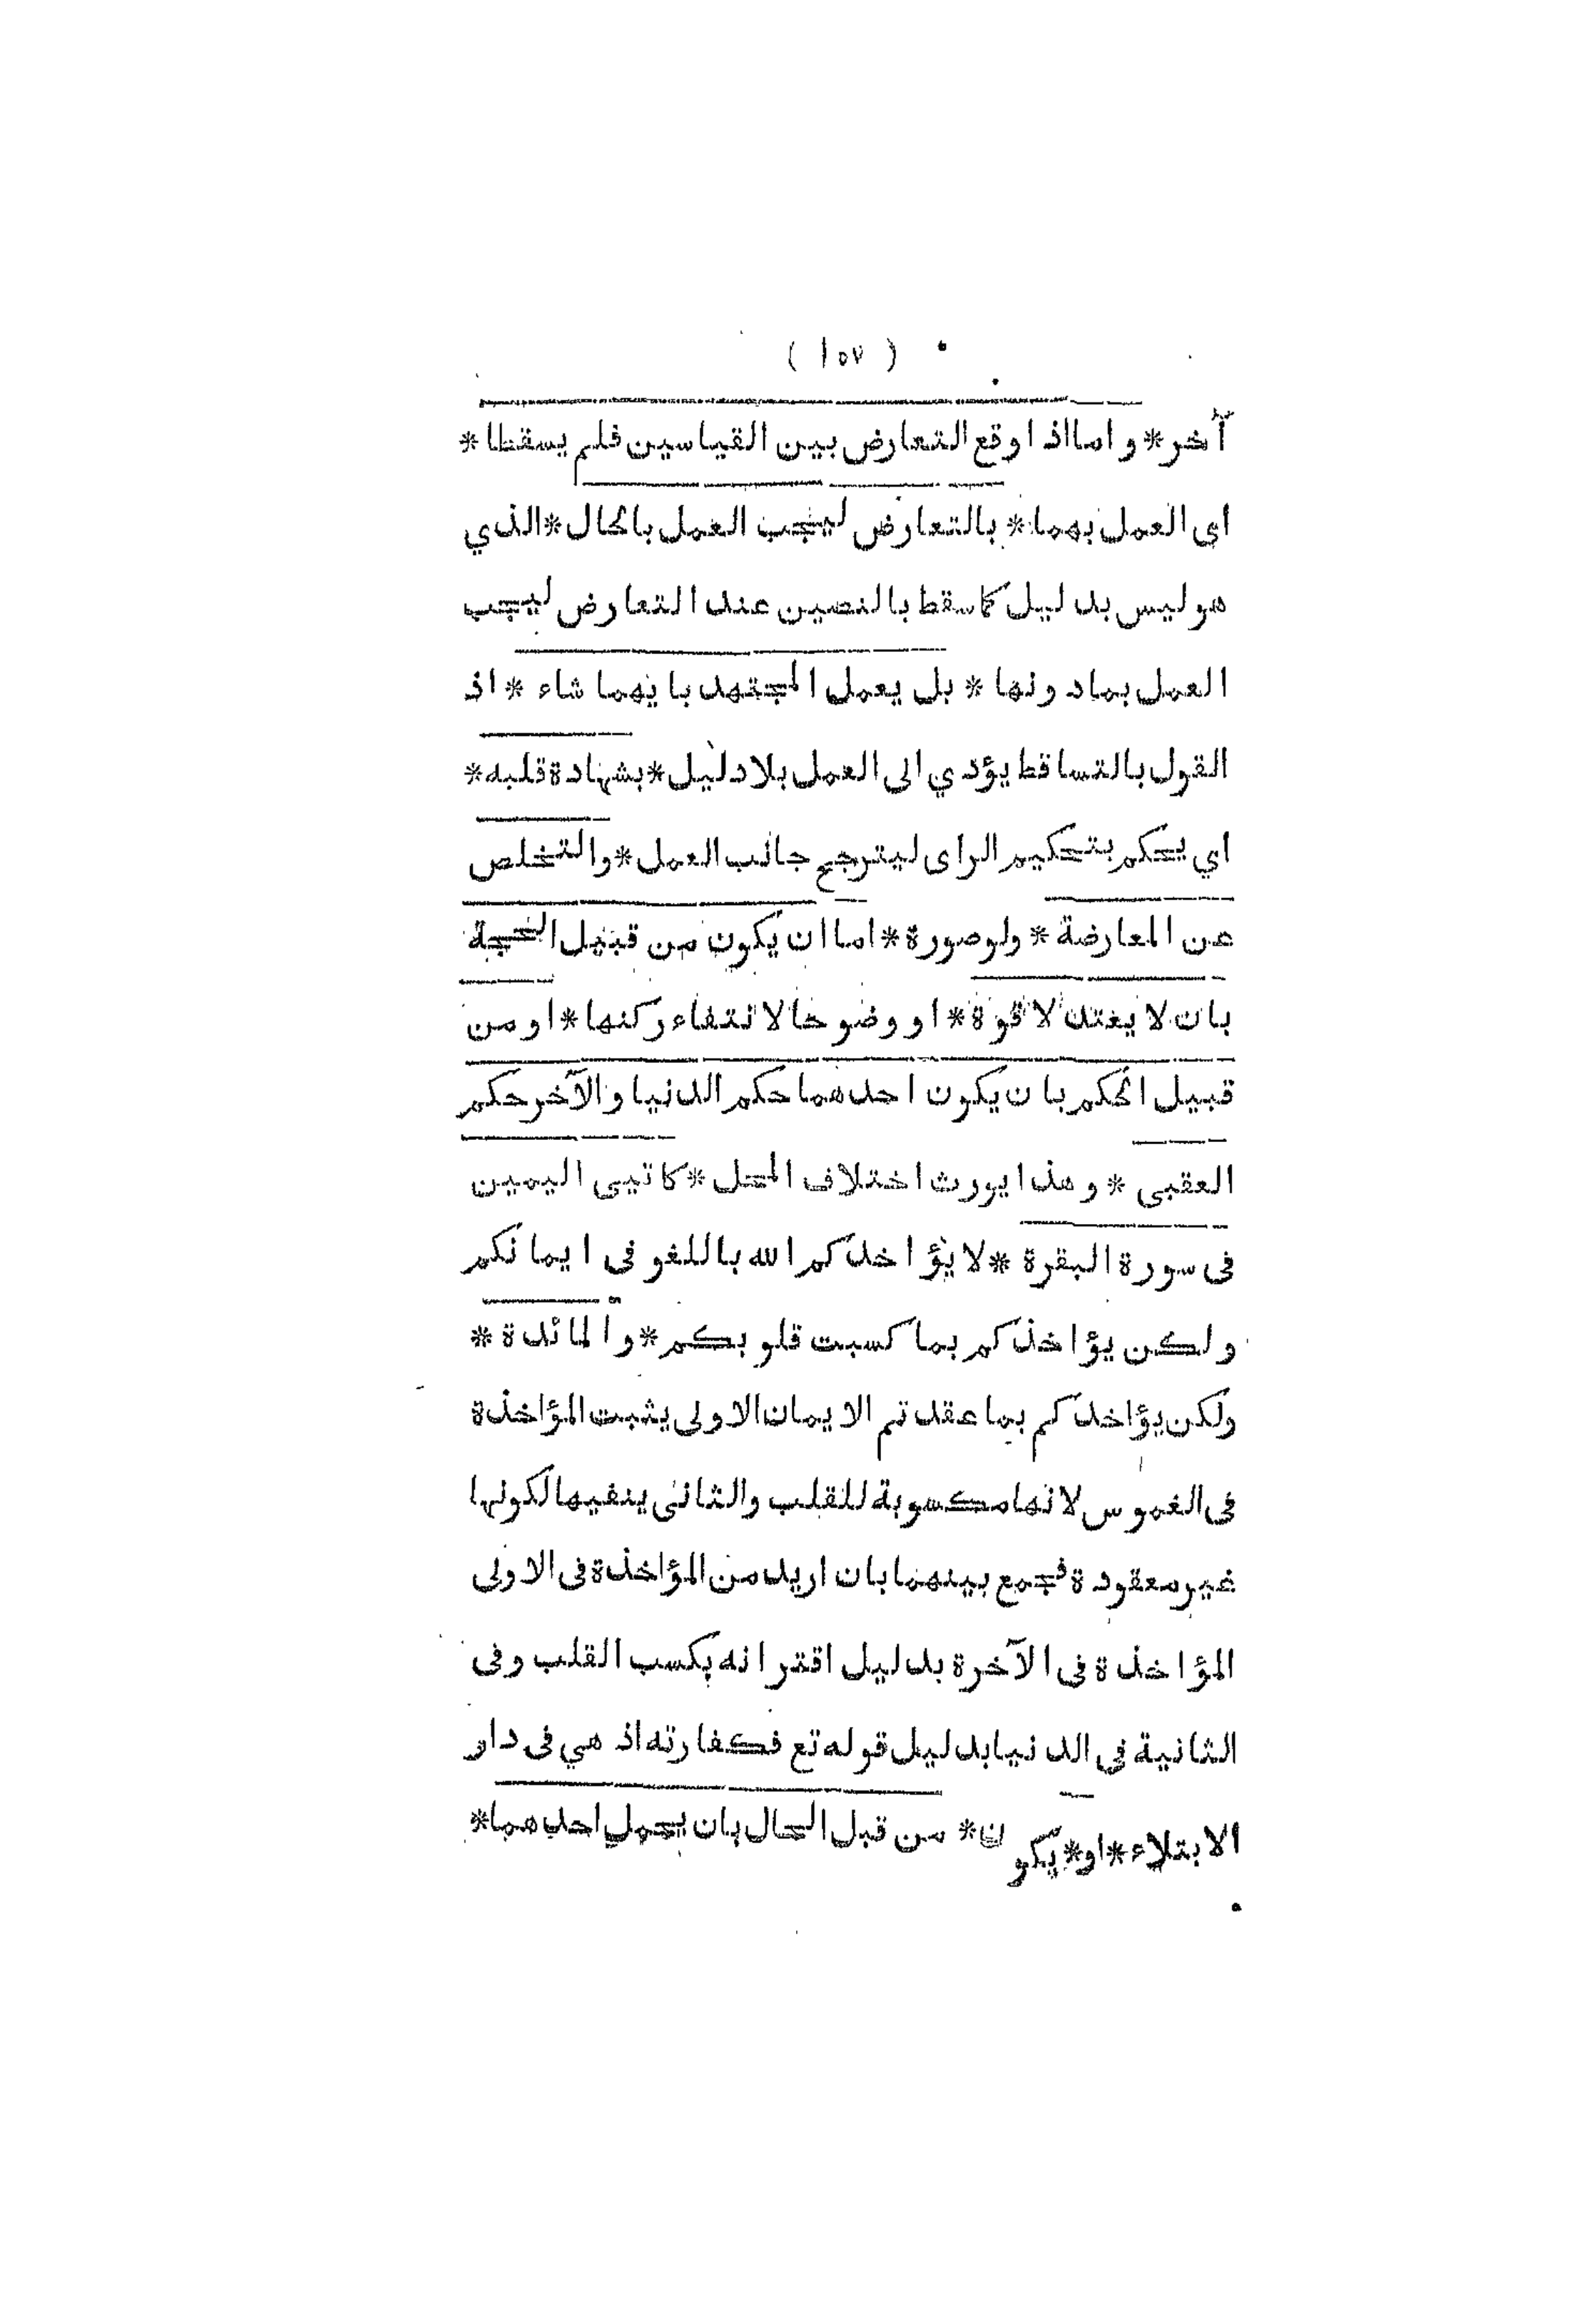 ( ١٥٧ )
آخر* واما اذا وقع التعارض بين القياسين فلم يسقطا*
اى العمل بهما* بالتعارض ليجب العمل بالحال* الذي
هو ليس بدليل كما سقط بالنصين عند التعارض ليجب
العمل بما دونها* بل يعمل المجتهد بايهما شاء* اذ
القول بالتساقط يؤدي الى العمل بلا دليل* بشهادة قلبه*
اي يحكم بتحكيم الراى ليترجح جانب العمل* والتخلص
عن المعارضة* ولو صورة* اما ان يكون من قبيل الحجة
بان لا يعتدلا قوة* او وضوحا لانتفاء ركنها* او من
قبيل الحكم بان يكون احدهما حكم الدنيا والآخر حكم
العقبى* وهذا يورث اختلاف المحل* كآتيى اليمين
فى سورة البقرة* لا يؤاخذكم الله باللغو فى ايمانكم
ولكن يؤاخذكم بما كسبت قلوبكم* والمائدة*
ولكن يؤاخذكم بما عقدتم الايمان الاولى يثبت المؤاخذة
فى الغموس لانها مكسوبة للقلب والثانى ينفيها لكونها
غير معقودة فجمع بينهما بان اريد من المؤاخذة فى الاولى
المؤاخذة فى الآخرة بدليل اقترانه بكسب القلب وفى
الثانية فى الدنيا بدليل قوله تع فكفارته اذ هي فى دار
الابتلاء* او* يكون* من قبل الحال بان يحمل احدهما*